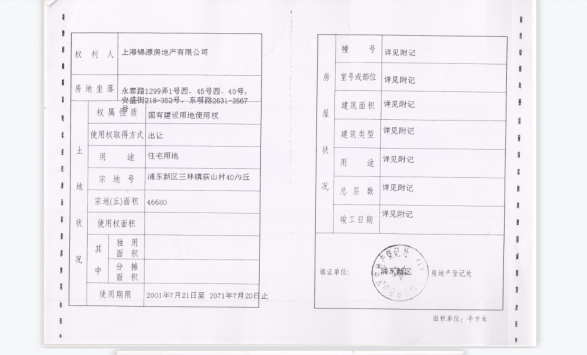 权利人 上海锦源房地产有限公司
房地坐落 永泰路1299弄1号西、45号西、49号,
安盛街218-352号、东明路2631-2667
号
土地状况
权属性质 国有建设用地使用权
使用权取得方式 出让
用途 住宅用地
宗地号 浦东新区三林镇 村40/9丘
宗地(丘)面积 46680
使用权面积
其中 独用面积
分摊面积
使用期限 2001年7月21日至 2071年7月20日止
房屋状况
幢号 详见附记
室号或部位 详见附记
建筑面积 详见附记
建筑类型 详见附记
用途 详见附记
总层数 详见附记
竣工日期 详见附记
填证单位: 浦东新区 房地产登记处
面积单位:平方米